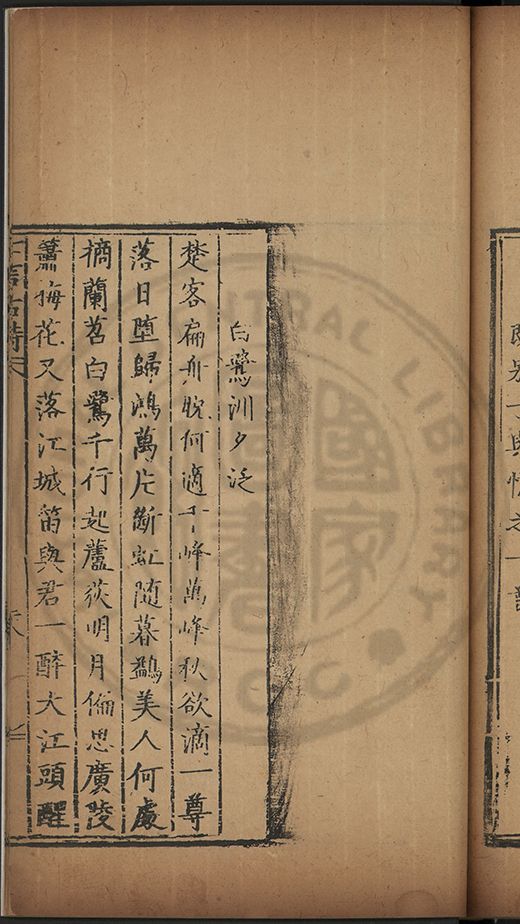 白鷺洲夕泛
楚客扁舟晚何適千峰萬峰秋欲滴一尊
落日墮歸鴻萬片斷虹隨暮鷁美人何處
摘蘭苕白鷺千行起蘆荻明月偏思廣陵
簫梅花又落江城笛與君一醉大江頭醒
言古詩